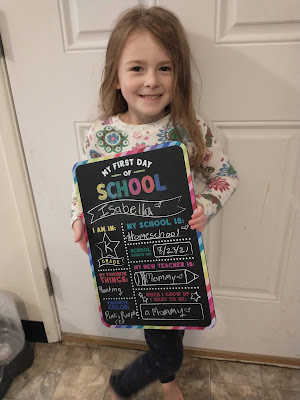 MY FIRST DAY
OF
SCHOOL
Isabella
I AM IN:
K
GRADE
MY SCHOOL IS:
Homeschool
SCHOOL
8/23/21
MY FAVORITE
THINGS:
Painting
MY NEW TEACHER IS:
Mommy
WHEN I GROW UP
I WANT TO BE:
a Mommy
COLOR:
Purple